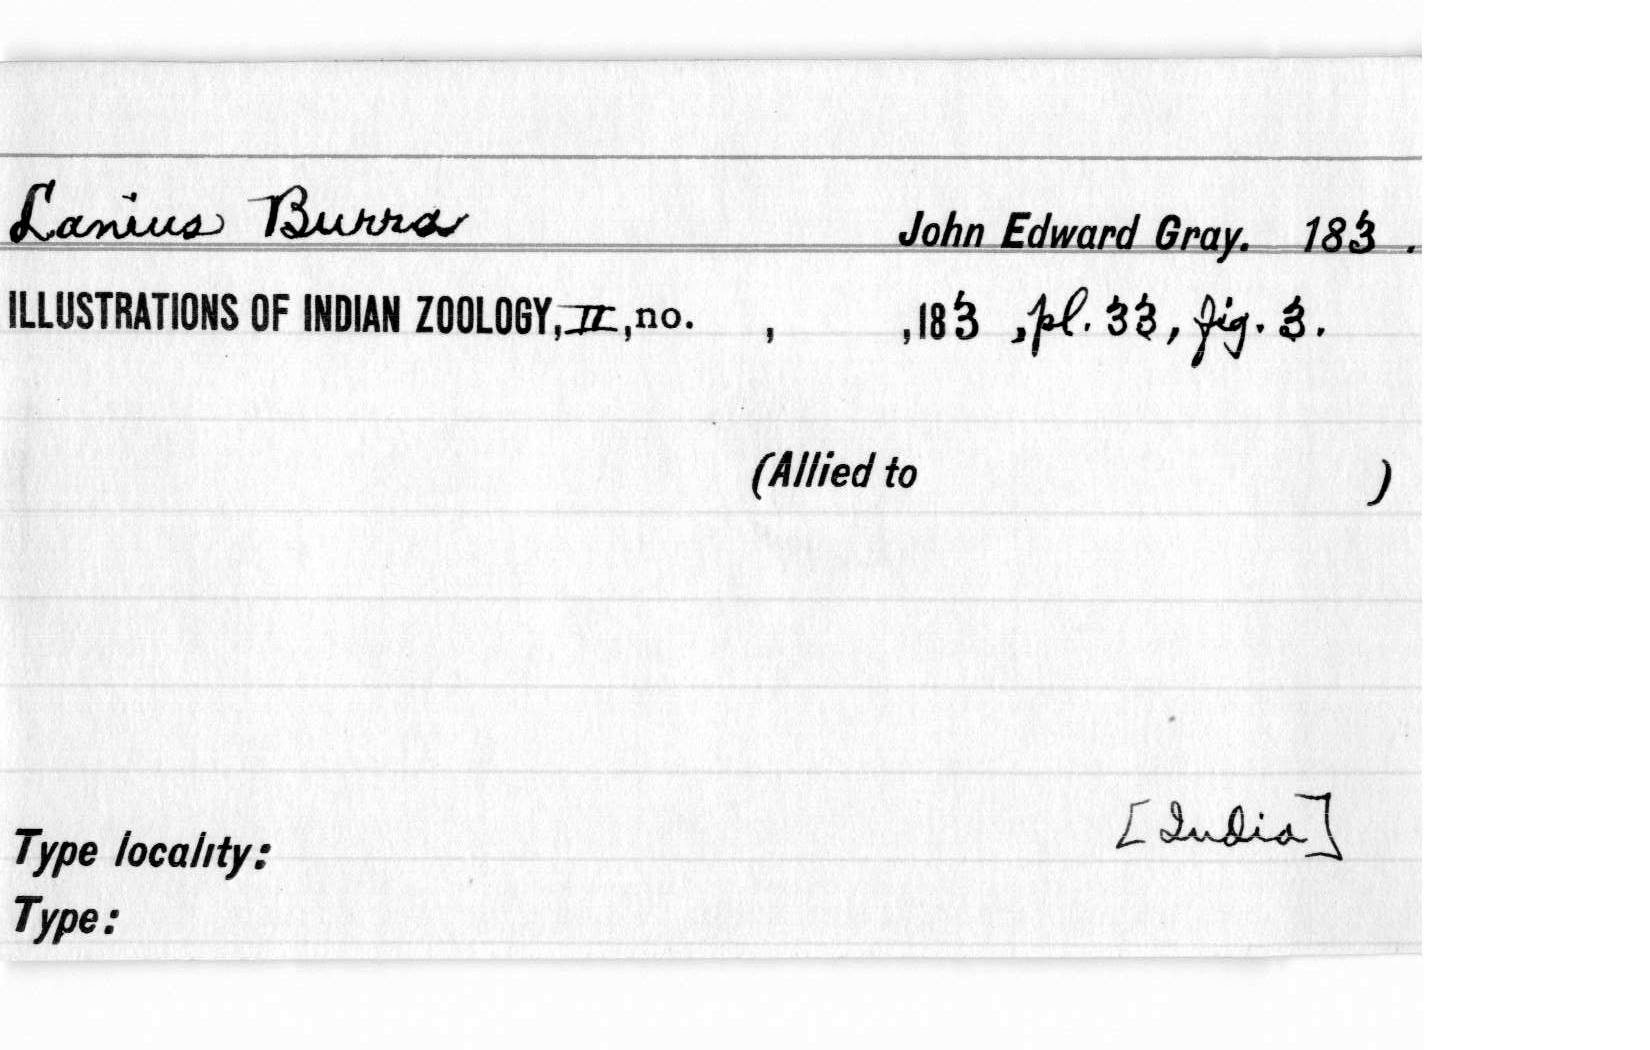 Lanius Burra John Edward Gray. 183 .
ILLUSTRATIONS OF INDIAN ZOOLOGY, II, no. , ,183 , pl. 33, fig. 3.
(Allied to )
[India]
Type locality:
Type: